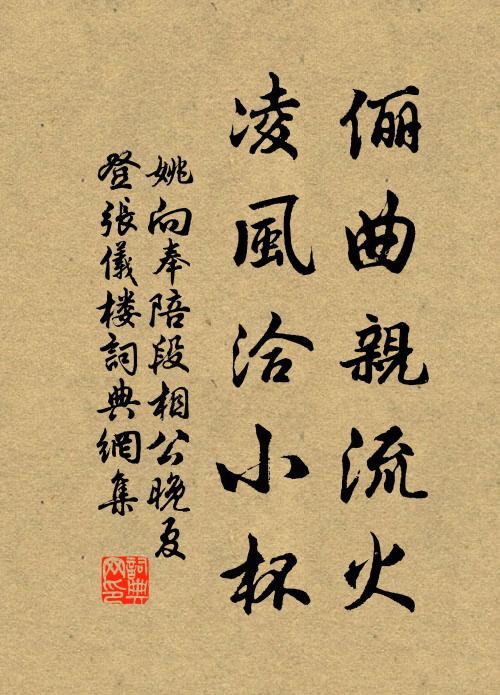 俪曲親流火
凌風洽小杯
姚向奉陪段相公晚夏
登張儀楼詞典網集
詞典网印